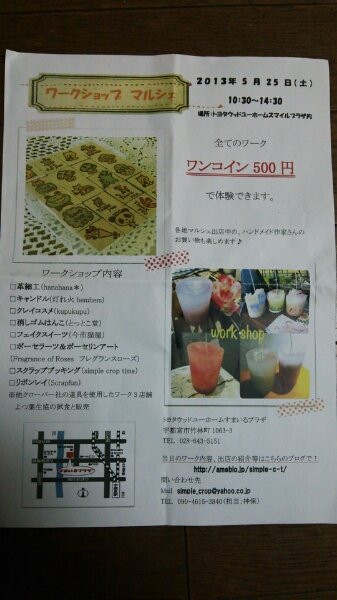 ワークショップ マルシェ
2013年 5月 25日(土)
10:30～14:30
場所:トヨタウッドユーホームスマイルプラザ内
全てのワーク
ワンコイン 500 円
で体験できます。
各地マルシェ出店中の、ハンドメイド作家さんの
お買い物も楽しめます♪
ワークショップ内容
□革細工(hanohana＊)
□キャンドル(灯れ火 hemhem)
□クレイコスメ(kupukupu)
□消しゴムはんこ(とっとこ堂)
□フェイクスイーツ(今市猫猫)
□ポーセラーツ＆ポーセリンアート
(Fragrance of Roses フレグランスローズ)
□スクラップブッキング(simple crop time)
□リボンレイ(Scrapfun)
※他クローバー社の道具を使用したワーク3店舗
よつ葉生協の試食と販売
work shop
トヨタウッドユーホームすまいるプラザ
宇都宮市竹林町 1063-3
TEL 028-643-5151
当日のワーク内容、出店の紹介等はこちらのブログで！
http://ameblo.jp/simple-c-t/
問い合わせ先
Mail simple_crop@yahoo.co.jp
TEL 090-4615-3840(担当:神保)